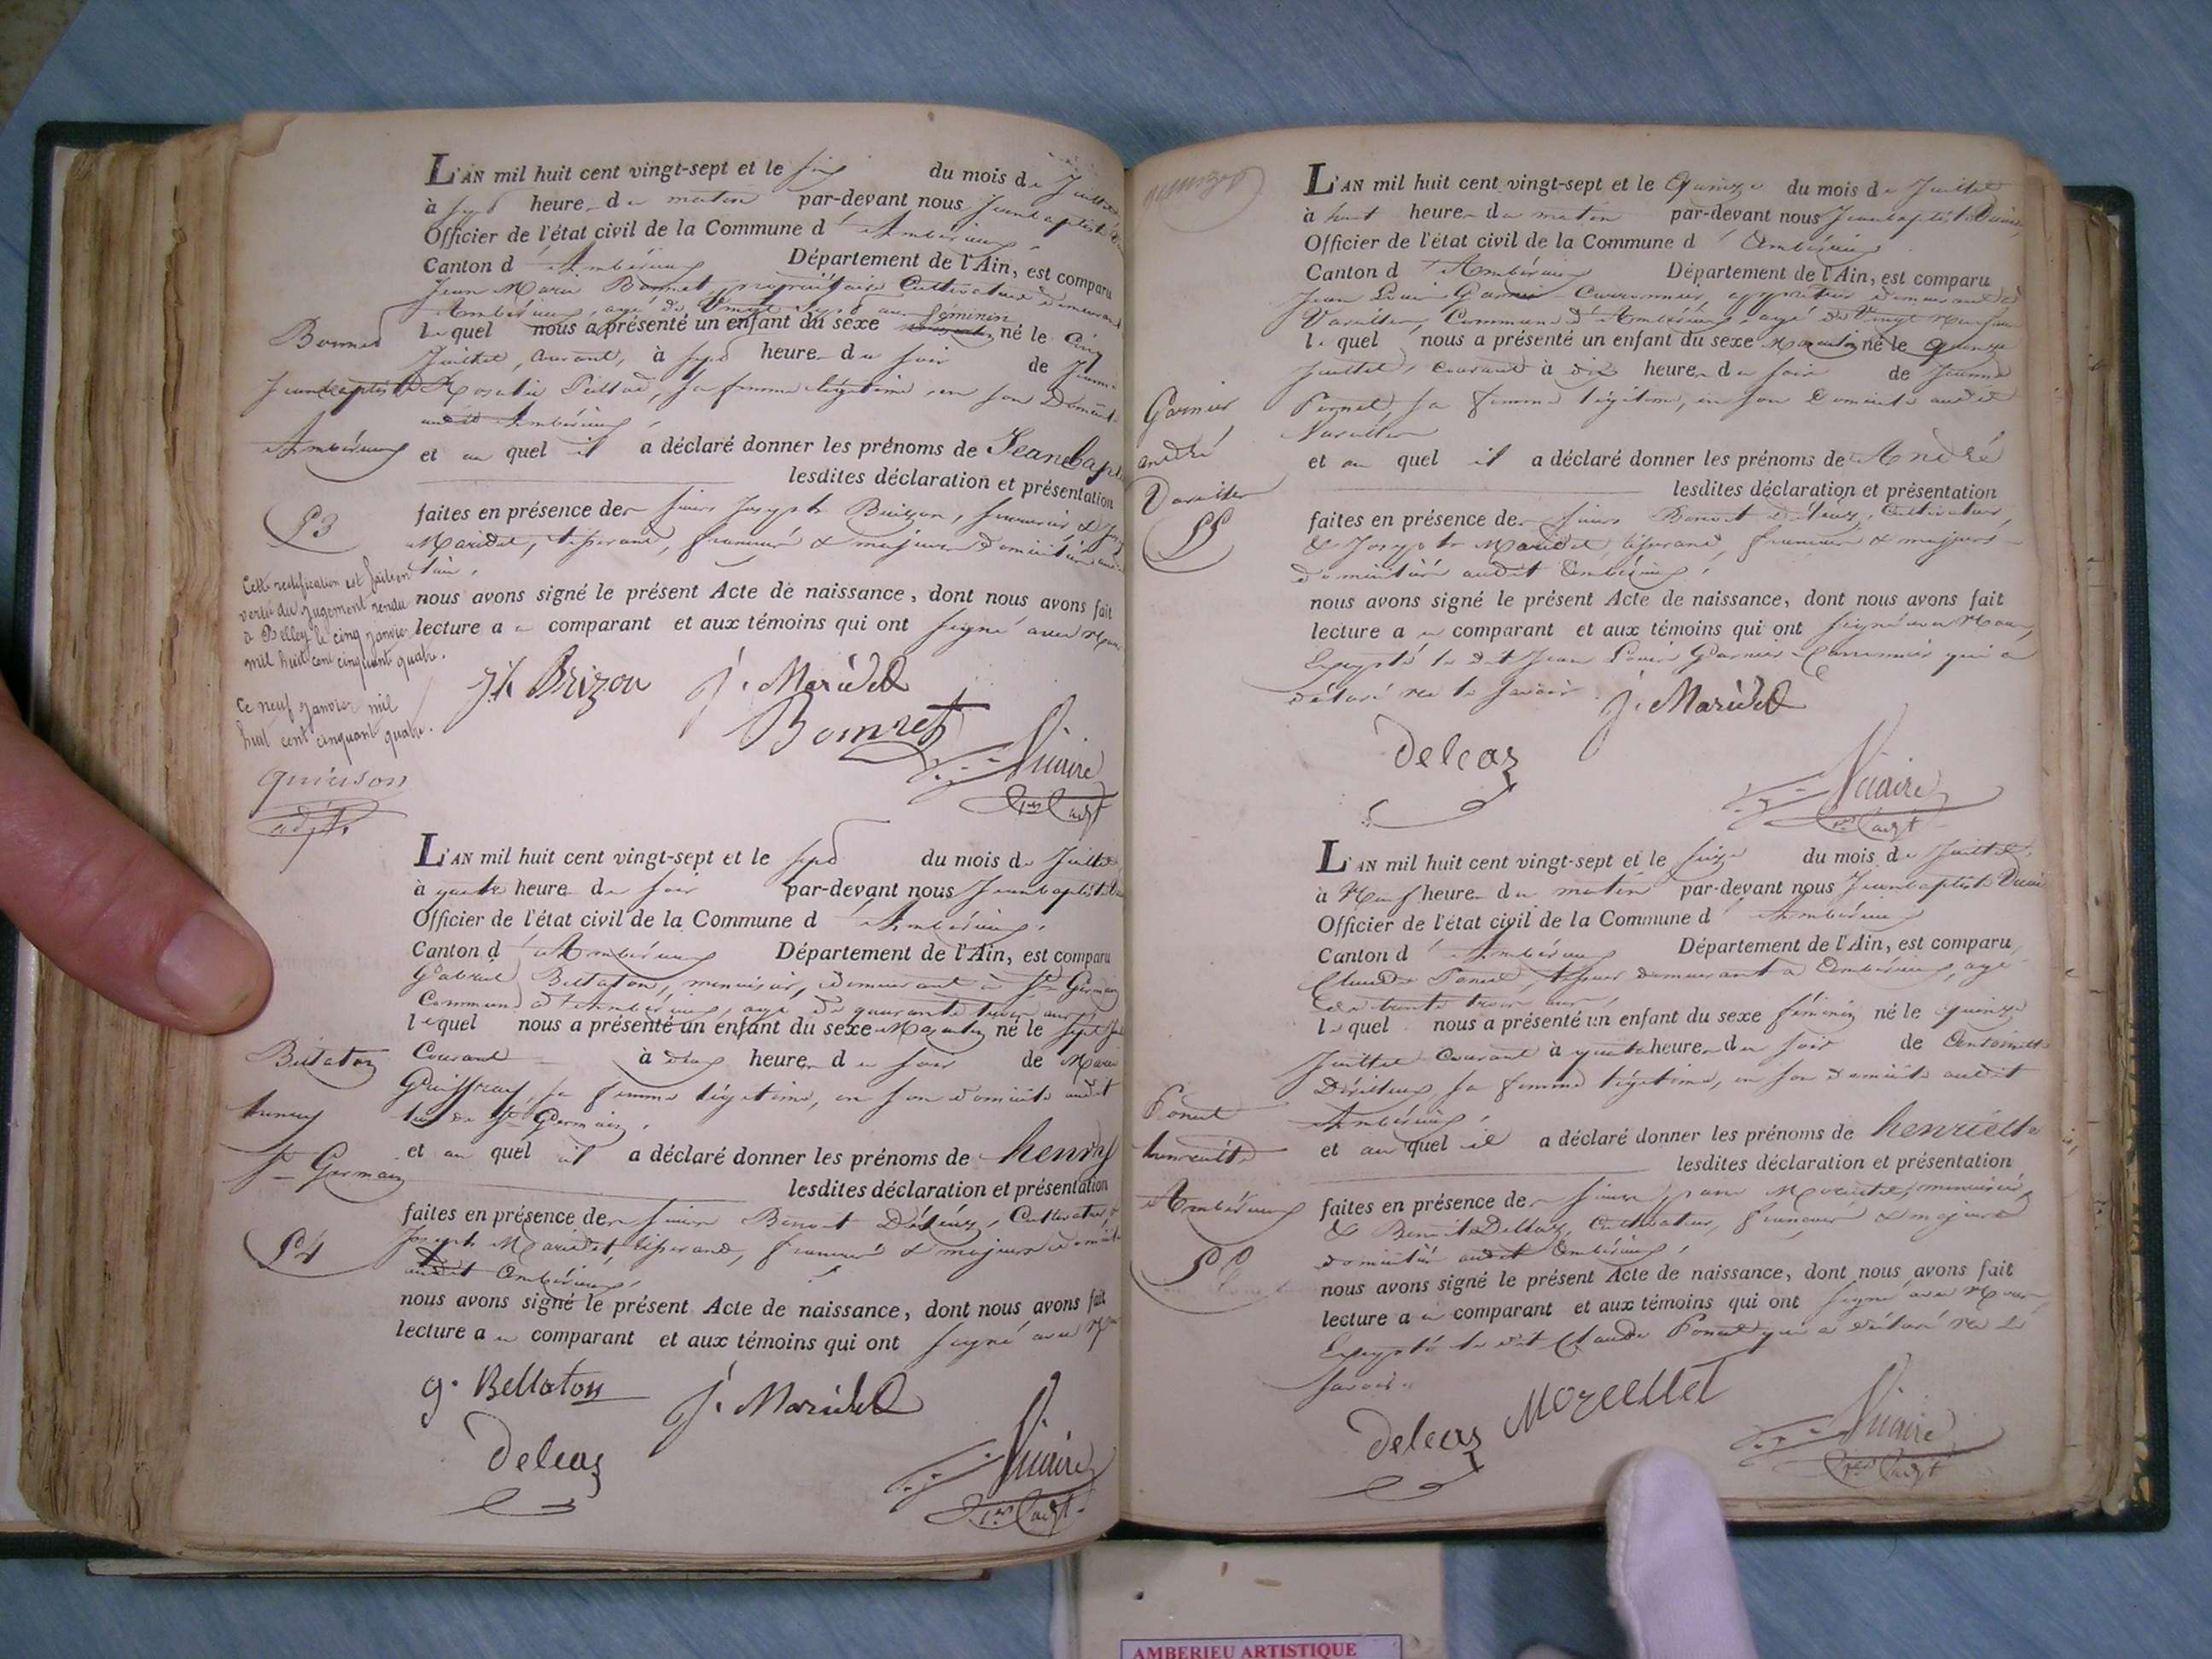 L'AN mil huit cent vingt-sept et le six du mois de Juillet
à sept heure du matin par-devant nous Jeanbaptiste
Officier de l'état civil de la Commune d'Ambérieux
Canton d'Ambérieux Département de l'Ain, est comparu
Jean Marie Bonnet, propriétaire Cultivateur demeurant
Ambérieux, agé de Vingt sept ans féminin
lequel nous a présenté un enfant du sexe né le Cinq
Bonnet
Juillet, courant, à sept heure du soir de Jeanne
Jeanbaptiste
Rosalie, sa femme légitime, en son Domicile
audit Ambérieux
Ambérieux
et au quel il a déclaré donner les prénoms de Jeanbapt
lesdites déclaration et présentation
53
faites en présence des sieurs Joseph Brizon,
Maridet, tisserand, français & majeurs domiciliés
lieu.
nous avons signé le présent Acte de naissance, dont nous avons fait
lecture au comparant et aux témoins qui ont signé avec Nous
Cette rectification est faite en
vertu du jugement rendu
à Belley le cinq janvier
mil huit cent cinquant quatre.
Ce neuf janvier mil
huit cent cinquant quatre.
adjt.
Jh Brizon J. Maridet
Bonnet
L'AN mil huit cent vingt-sept et le sept du mois de Juillet
à quatre heure du soir par-devant nous Jeanbaptiste
Officier de l'état civil de la Commune d'Ambérieux
Canton d'Ambérieux Département de l'Ain, est comparu
Gabriel Bellaton, menuisier, demeurant à St Germain
Commune d'Ambérieux, agé de quarante trois ans
lequel nous a présenté un enfant du sexe Masculin né le sept
Bellaton
Courant à deux heure du soir de Marie
sa femme légitime, en son domicile audit
henry
lieu de St Germain.
et au quel il a déclaré donner les prénoms de henry
St Germain
lesdites déclaration et présentation
faites en présence des sieurs Benoit Deleaz, Cultivateur, &
Joseph Maridet tisserand, français & majeurs
54
audit Ambérieux
nous avons signé le présent Acte de naissance, dont nous avons fait
lecture au comparant et aux témoins qui ont signé avec Nous
g. Bellaton J. Maridet
Deleaz
L'AN mil huit cent vingt-sept et le Quinze du mois de Juillet
à huit heure du matin par-devant nous Jeanbaptiste
Officier de l'état civil de la Commune d'Ambérieux
Canton d'Ambérieux Département de l'Ain, est comparu
Jean Louis Garnier demeurant
Vareilles, Commune d'Ambérieux, agé de Vingt Neuf ans
lequel nous a présenté un enfant du sexe Masculin né le Quinze
Juillet, courant à dix heure du soir de Jeanne
Garnier
Pernet, sa femme légitime, en son Domicile audit
Vareilles
andré
et au quel il a déclaré donner les prénoms de André
Vareilles
lesdites déclaration et présentation
55
faites en présence des sieurs Benoit Deleaz, Cultivateur,
& Joseph Maridet tisserand, français & majeurs
domiciliés audit Ambérieux
nous avons signé le présent Acte de naissance, dont nous avons fait
lecture au comparant et aux témoins qui ont signé avec Nous,
Excepté le dit Jean Louis Garnier qui a
déclaré ne le savoir.
J. Maridet
Deleaz
L'AN mil huit cent vingt-sept et le seize du mois de Juillet
à Neuf heure du matin par-devant nous Jeanbaptiste
Officier de l'état civil de la Commune d'Ambérieux
Canton d'Ambérieux Département de l'Ain, est comparu
Claude Poncet, demeurant a Ambérieux, agé
de trente trois ans
lequel nous a présenté un enfant du sexe féminin né le quinze
Juillet Courant à quatre heure du soir de Antoinette
sa femme légitime, en son domicile audit
Poncet
Ambérieux
henriette
et au quel il a déclaré donner les prénoms de henriette
lesdites déclaration et présentation
Ambérieux
faites en présence des sieurs menuisier,
& Benoit Deleaz, Cultivateur, français & majeurs
56
domiciliés audit Ambérieux
nous avons signé le présent Acte de naissance, dont nous avons fait
lecture au comparant et aux témoins qui ont signé avec Nous
Excepté le dit Claude Poncet qui a déclaré ne le
savoir.
Deleaz Morellet
AMBERIEU ARTISTIQUE